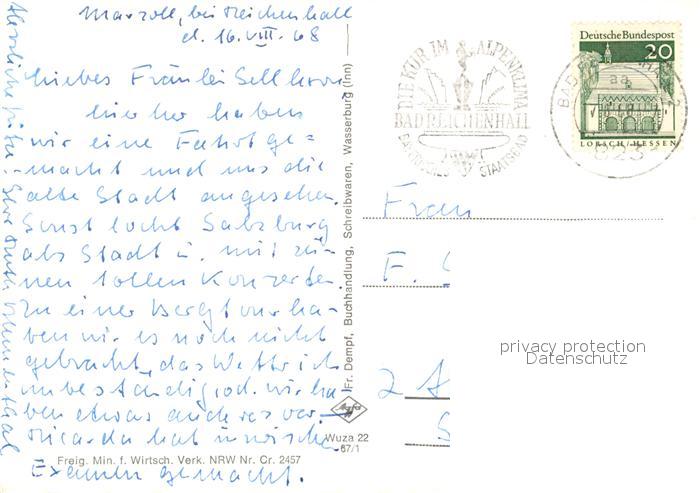 Marzoll, bei Reichenhall
d. 16. VIII. 68
Liebes Fräulein Sellhorn
hierher haben
wir eine Fahrt ge=
macht und uns die
alte Stadt angesehen.
Sonst lockt Salzburg
als Stadt u. mit sei-
nen tollen Konzerten.
Zu einer Bergtour ha-
ben wir es noch nicht
gebracht, das Wetter ist
unbeständig od. wir ha-
ben etwas anderes vor.
Ricarda hat inzwischen
Examen gemacht.
Herzliche Grüße Ihre Ruth
Fr. Dempf, Buchhandlung, Schreibwaren, Wasserburg (Inn)
Agfa
Wuza 22
67/1
Freig. Min. f. Wirtsch. Verk. NRW Nr. Cr. 2457
DIE KUR IM ALPENKLIMA
BAD REICHENHALL
BAYERISCHES STAATSBAD
Deutsche Bundespost
20
LORSCH/HESSEN
BAD REICHENHALL 2
aa
823
Frau
F. S
2
privacy protection
Datenschutz